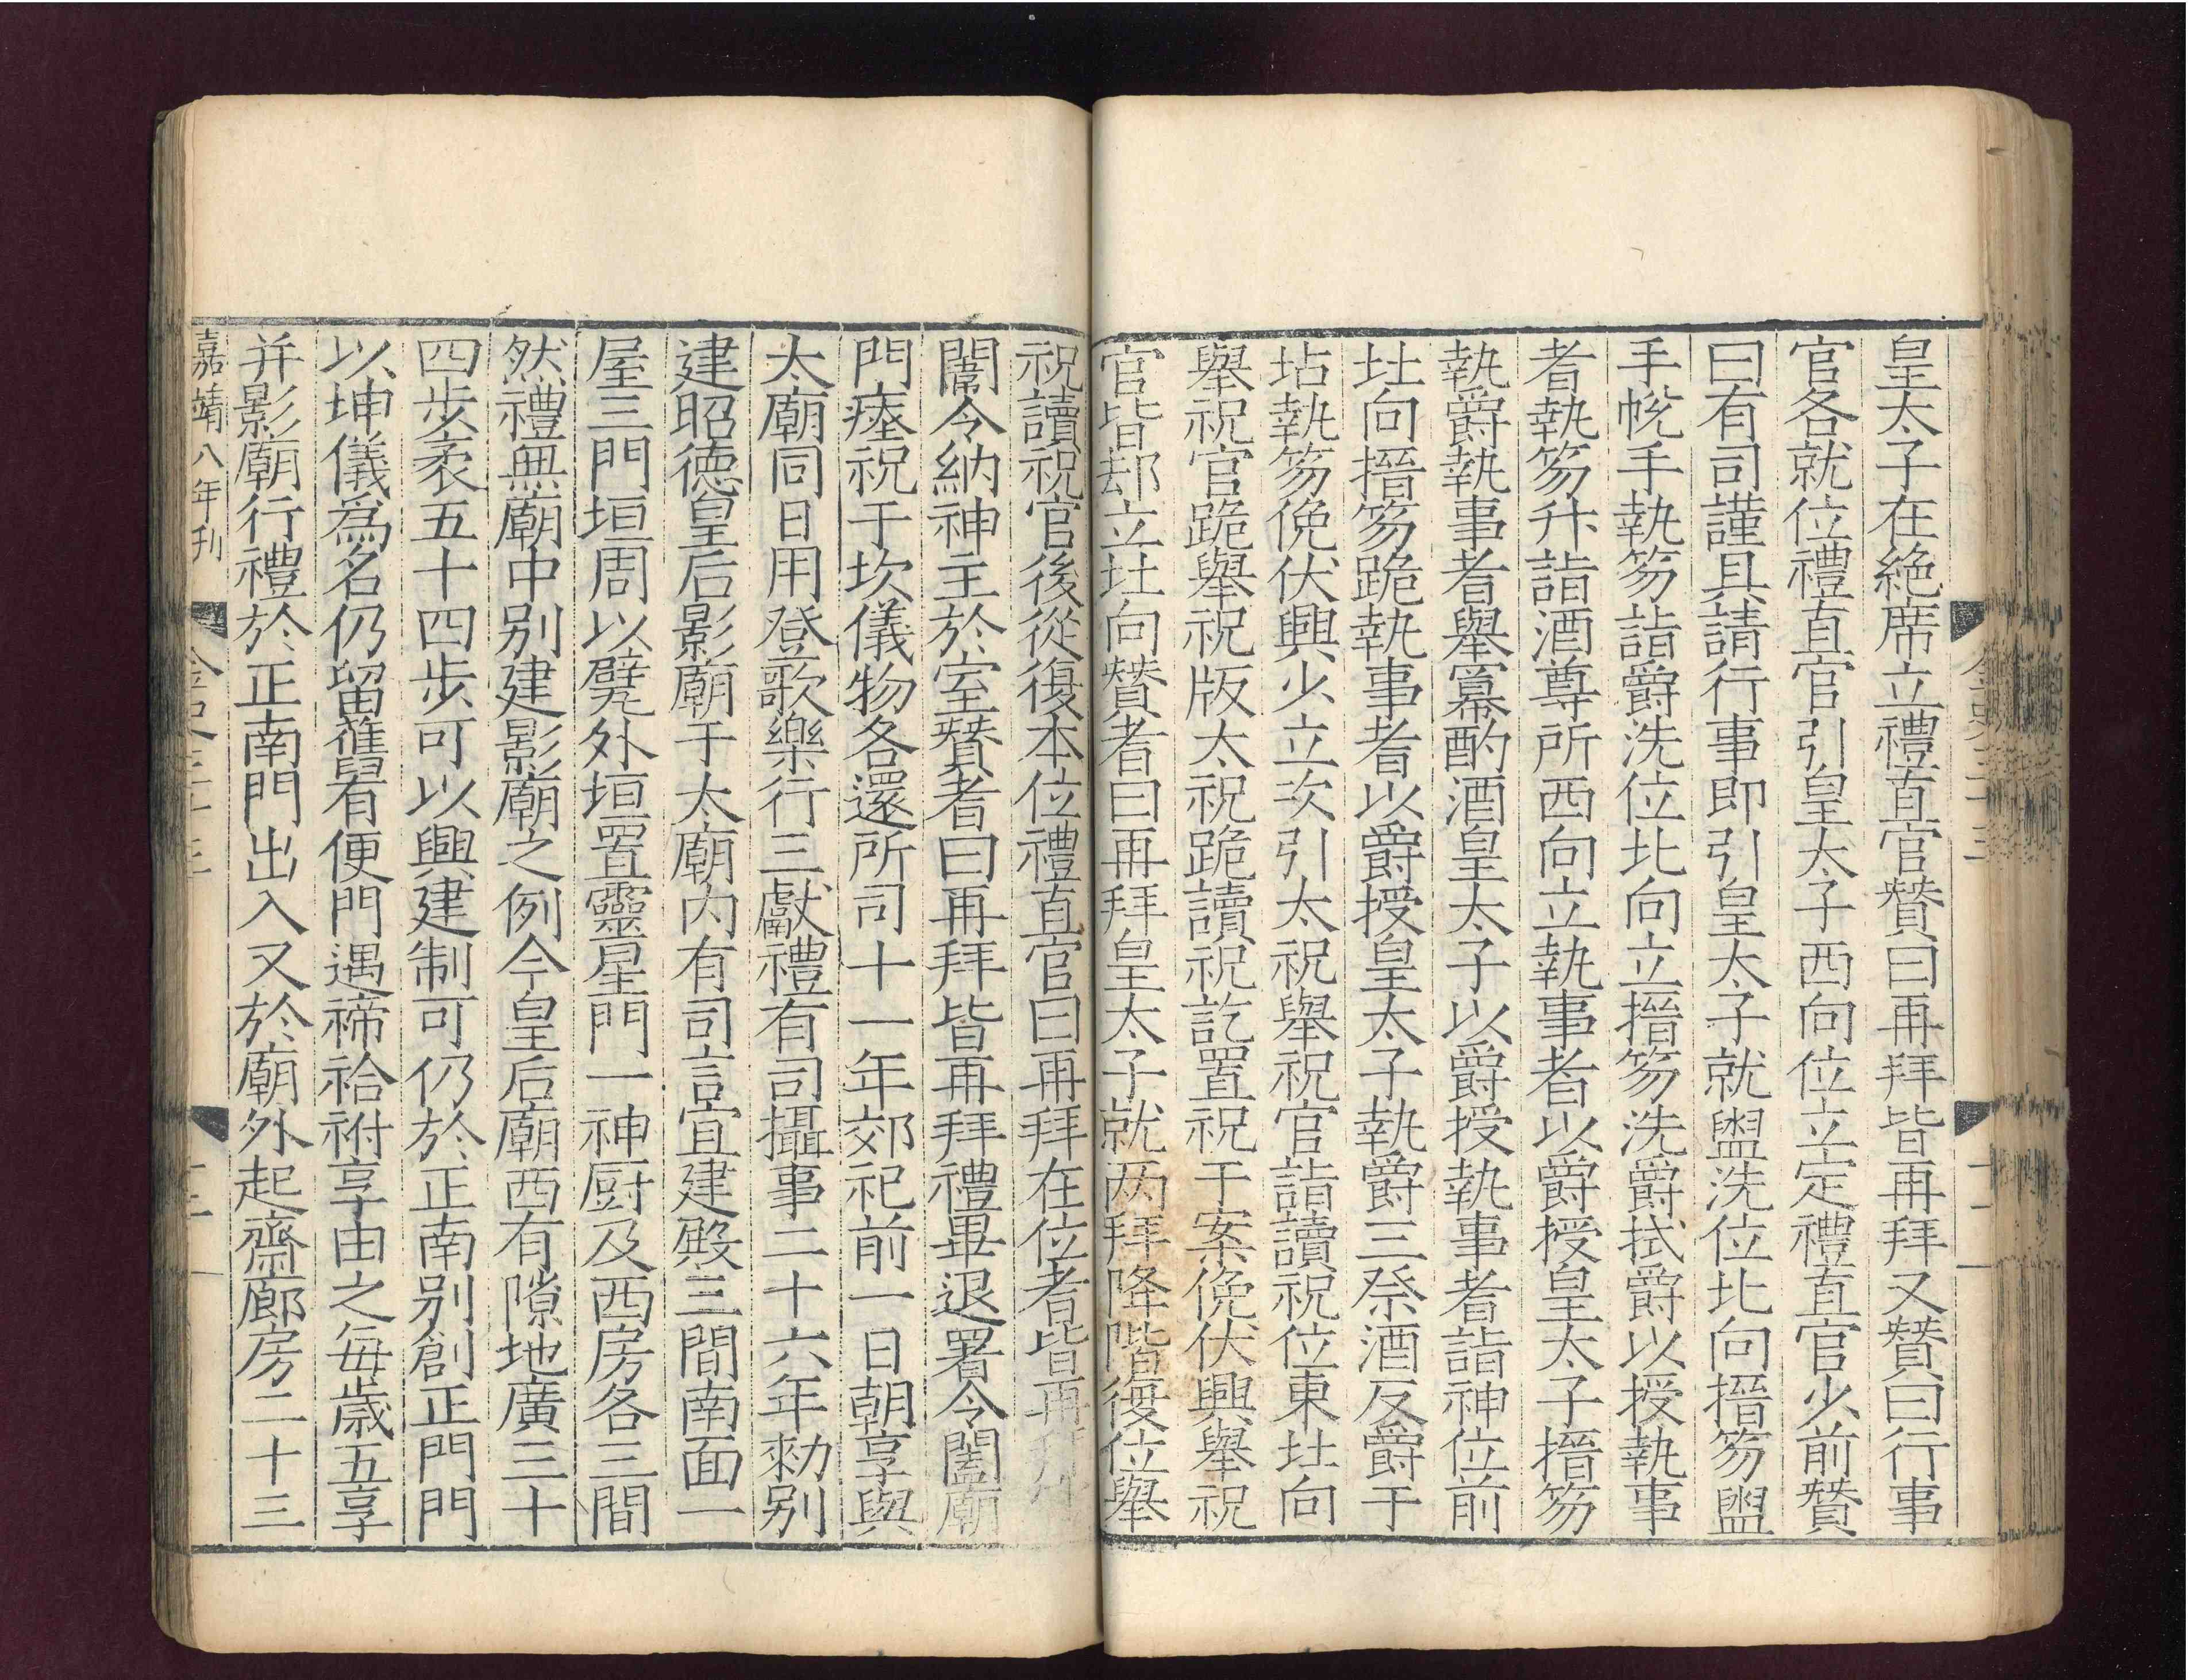 皇太子在絶席立禮直官贊曰再拜皆再拜又贊曰行事
官各就位禮直官引皇太子西向位立定禮直官少前贊
曰有司謹具請行事即引皇太子就盥洗位北向搢笏盥
手帨手執笏詣爵洗位北向立搢笏洗爵拭爵以授執事
者執笏升詣酒尊所西向立執事者以爵授皇太子搢笏
執爵執事者舉冪酌酒皇太子以爵授執事者詣神位前
北向搢笏跪執事者以爵授皇太子執爵三祭酒反爵于
坫執笏俛伏興少立次引太祝舉祝官詣讀祝位東北向
舉祝官跪舉祝版太祝跪讀祝訖置祝于案俛伏興舉祝
官皆却立北向贊者曰再拜皇太子就两拜降階復位舉
祝讀祝官後從復本位禮直官曰再拜在位者皆再拜
闈令納神主於室贊者曰再拜皆再拜禮畢退署令闔廟
門瘞祝于坎儀物各還所司十一年郊祀前一日朝享與
太廟同日用登歌樂行三獻禮有司攝事二十六年勑别
建昭德皇后影廟于太廟内有司言宜建殿三間南面一
屋三門垣周以甓外垣置靈星門一神厨及西房各三間
然禮無廟中别建影廟之例今皇后廟西有隙地廣三十
四步袤五十四步可以興建制可仍於正南别創正門門
以坤儀爲名仍留舊有便門遇禘祫祔享由之每歳五享
并影廟行禮於正南門出入又於廟外起齋廊房二十三
嘉靖八年刊